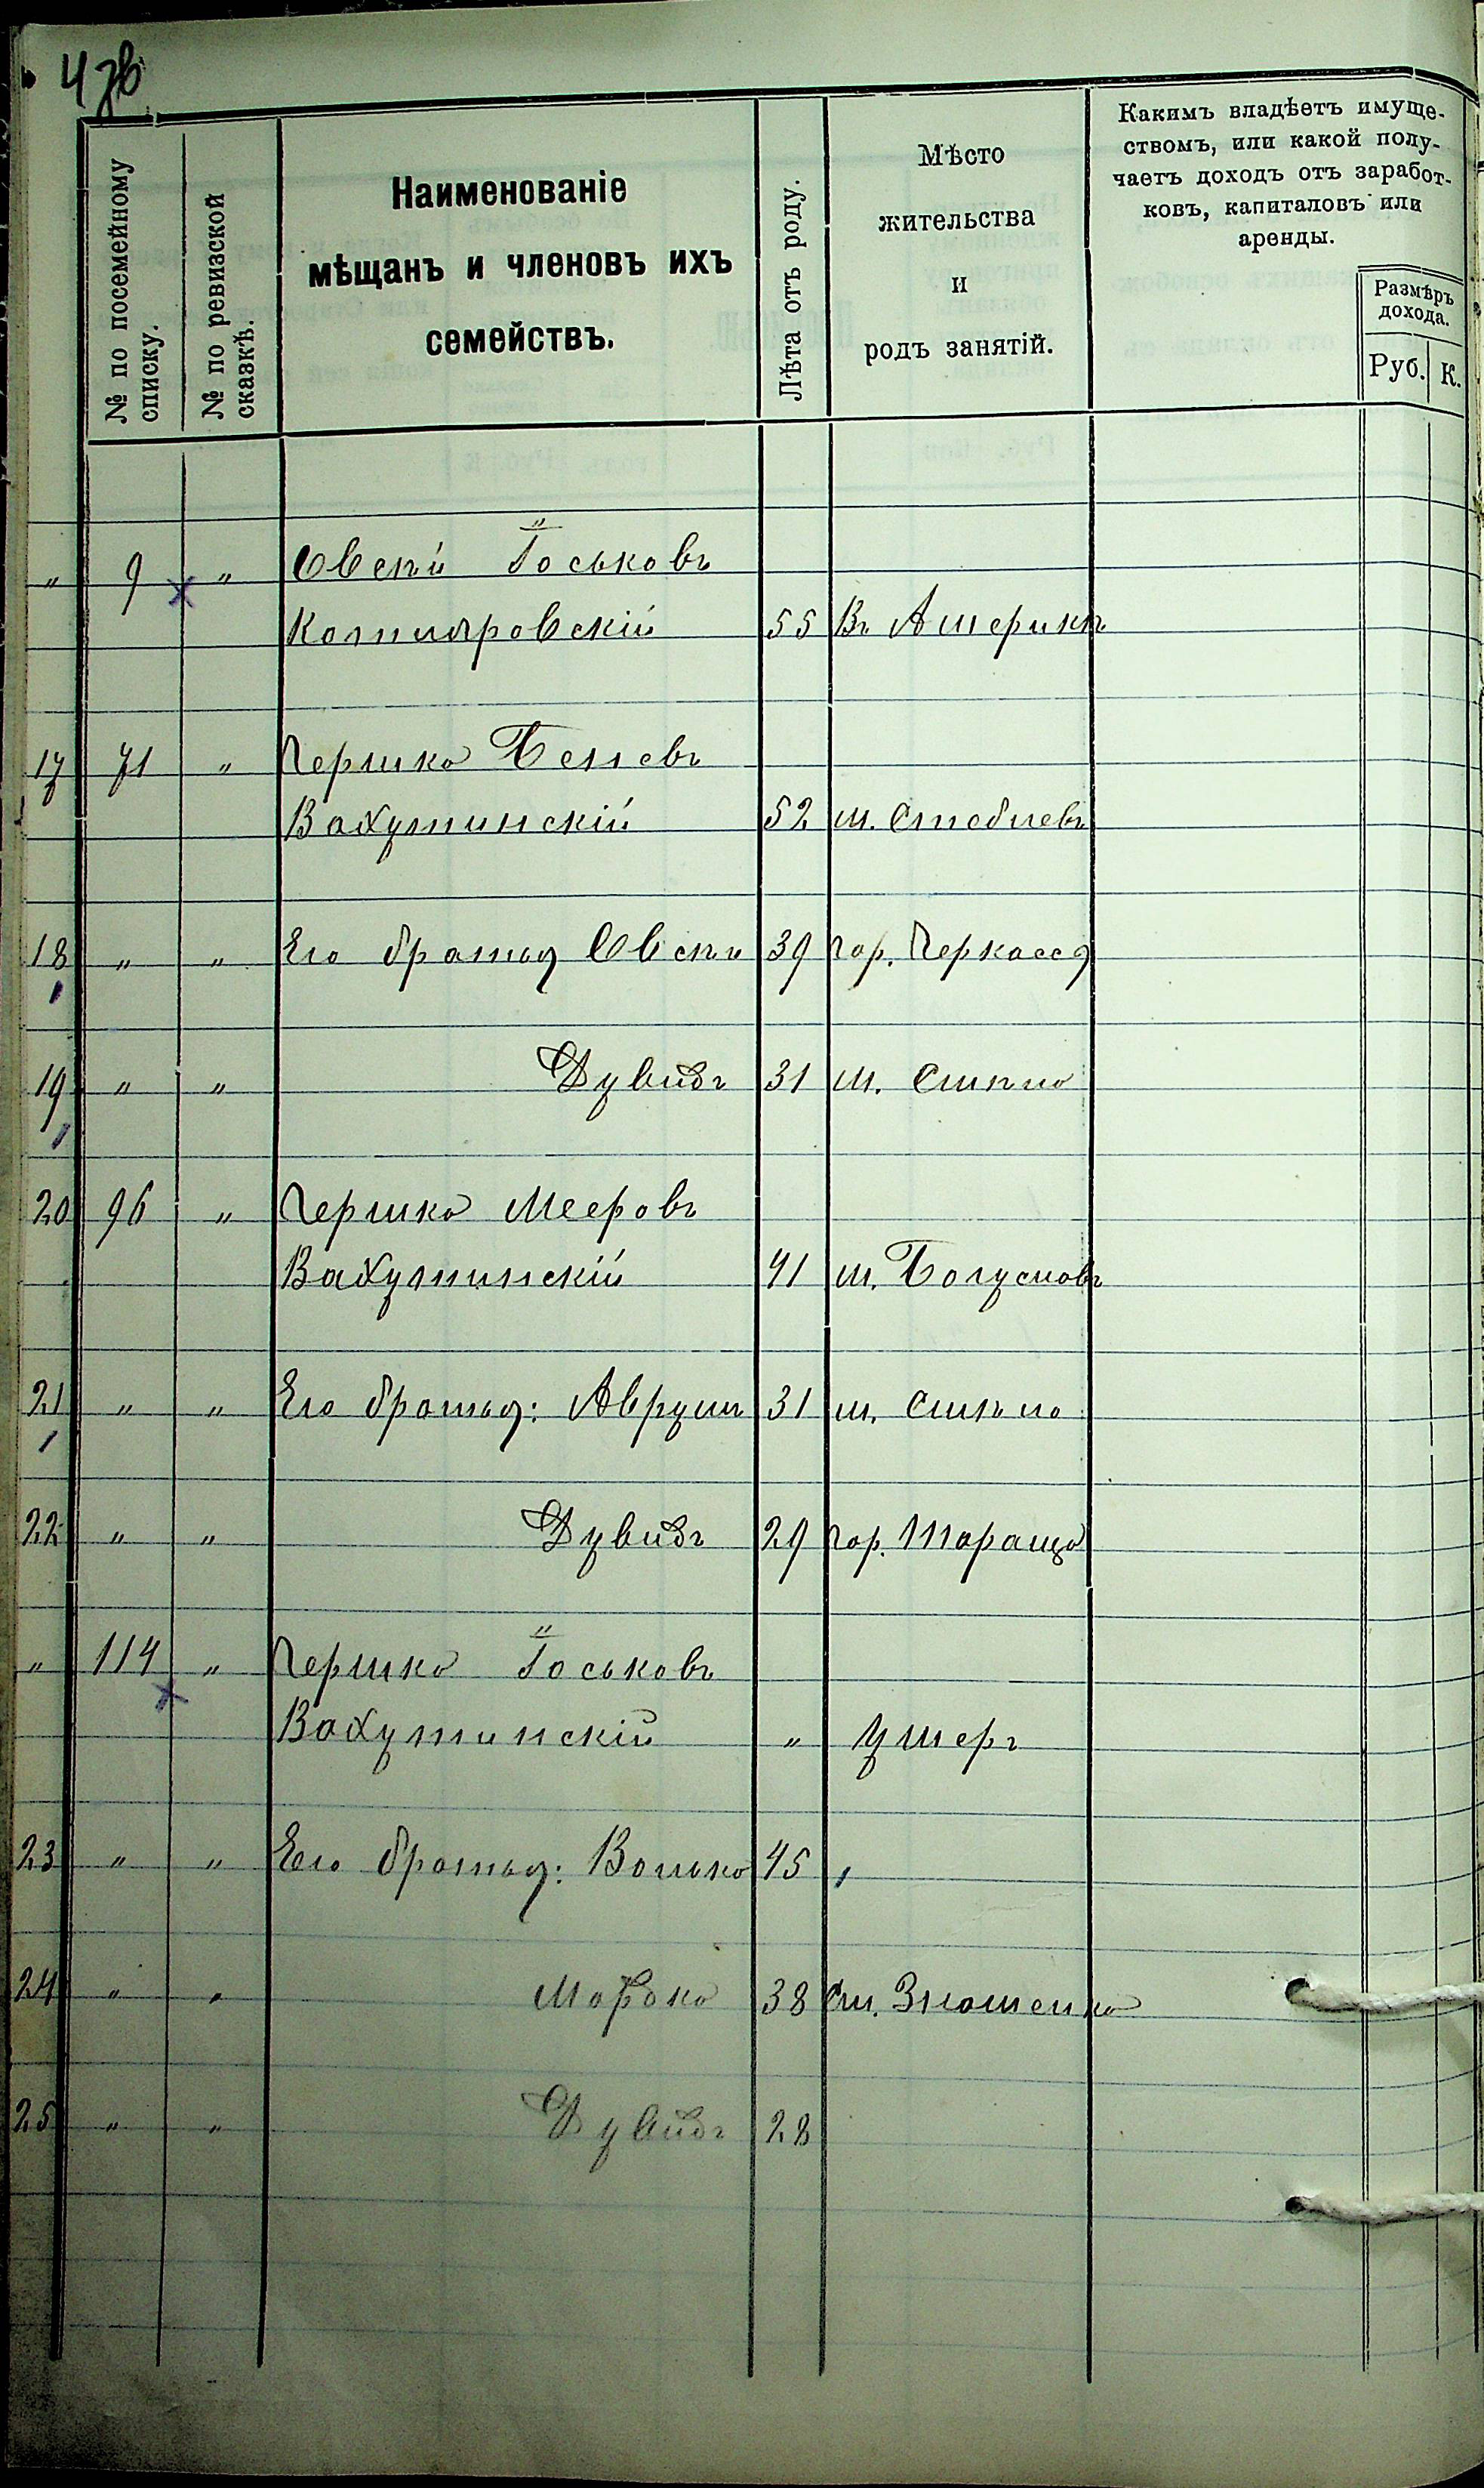 4зв
№ по посемейному списку.
№ по ревизской сказкѣ.
Наименованіе
мѣщанъ и членовъ ихъ
семействъ.
Лѣта отъ роду.
Мѣсто
жительства
и
родъ занятій.
Какимъ владѣетъ имуще-
ствомъ, или какой полу-
чаетъ доходъ отъ заработ-
ковъ, капиталовъ или
аренды.
Размѣръ
дохода.
Руб. К.
" 9 " Овсѣй Іоськовъ
Котляровскій 55 Въ Америкѣ
17 71 " Гершко Беневъ
Вахутинскій 52 м. Стеблевъ
18 " " Его братья Овсѣй 39 гор. Черкассы
19 " " Дувидъ 31 м. Смѣла
20 96 " Гершко Мееровъ
Вахутинскій 41 м. Богуславъ
21 " " Его братья: Аврумъ 31 м. Смѣла
22 " " Дувидъ 29 гор. Тараща
" 114 " Гершко Іоськовъ
Вахутинскій " умеръ
23 " " Его братья: Волько 45 "
24 " " Мордко 38 ст. Знаменка
25 " " Дувидъ 28